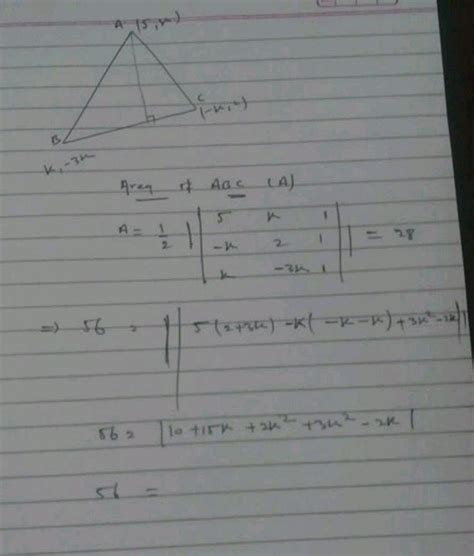 A (5, k)
C
(-k, 2)
B
k, -3k
Area of ABC (A)
A = 1/2 | | 5 k 1 |
| -k 2 1 | | = 28
| k -3k 1 |
=> 56 = | | 5(2+3k) -k(-k-k) +3k²-2k | |
56 = | 10 + 15k + 2k² + 3k² - 2k |
56 =